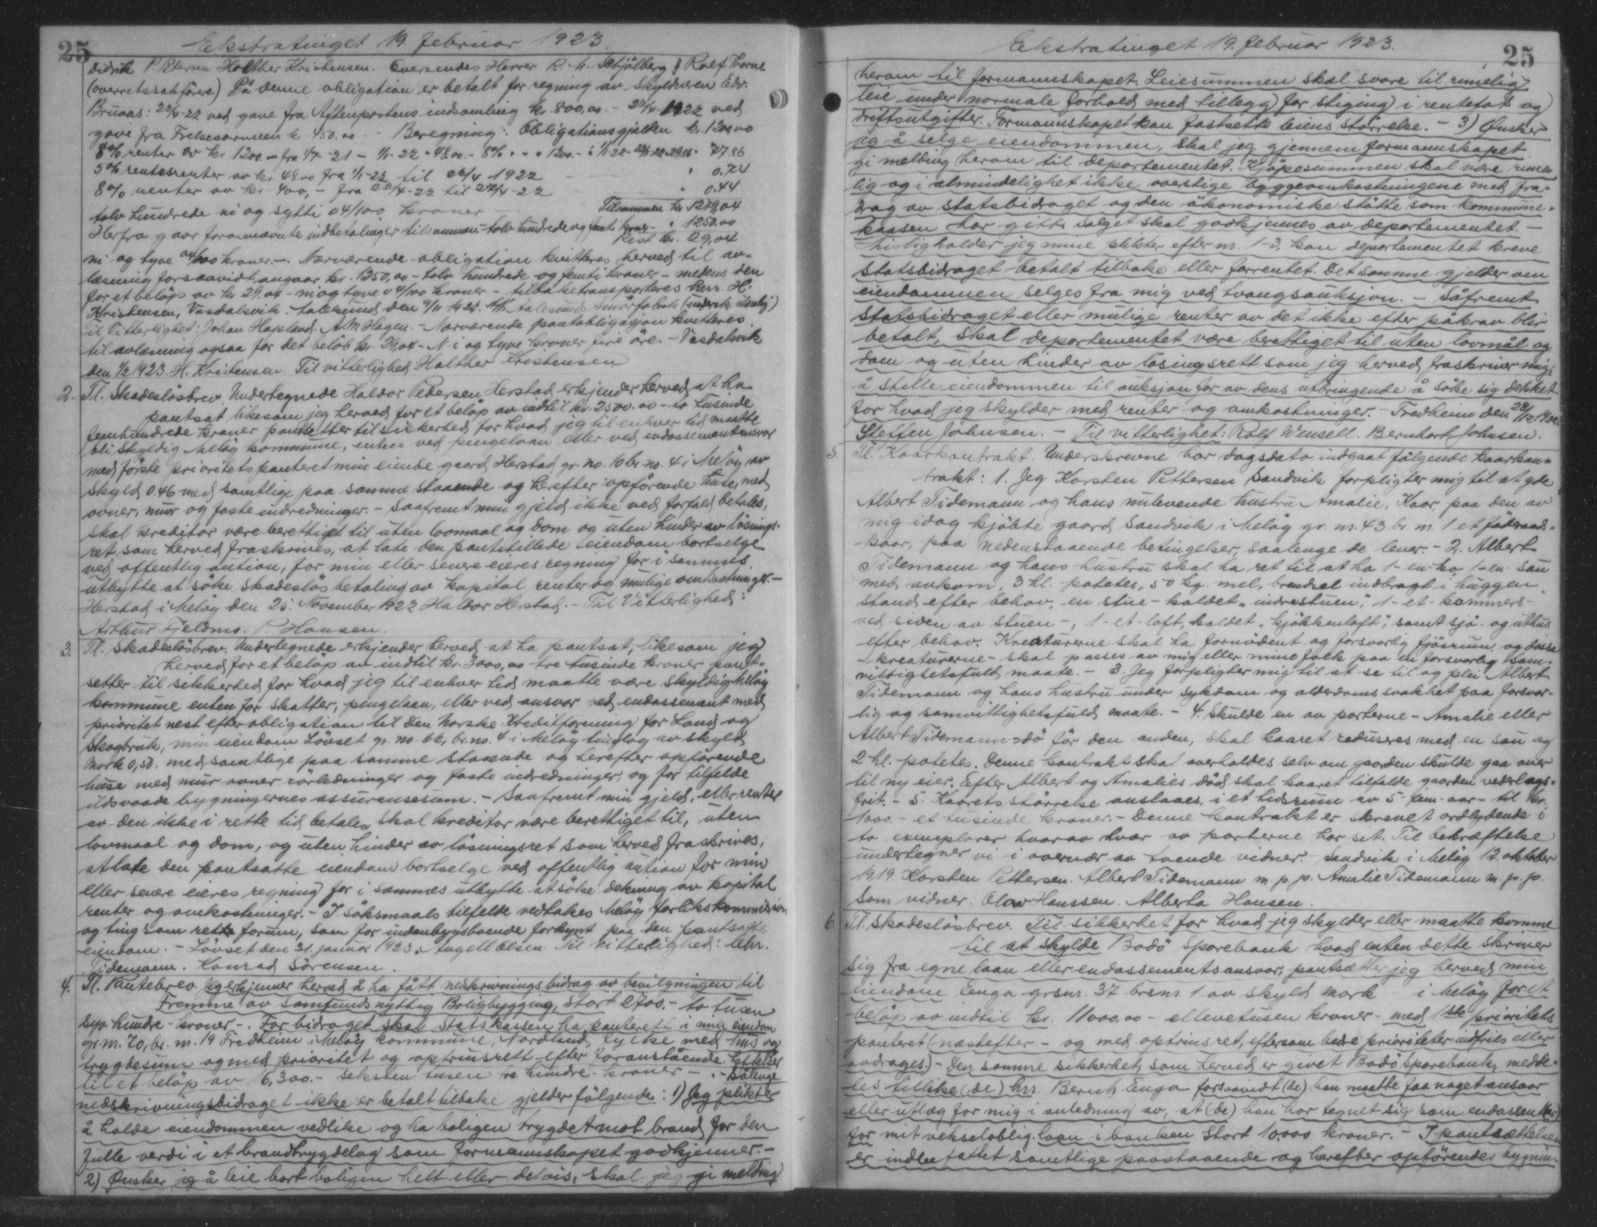 25
Ekstratinget 19. februar 1923.
Didrik Pettersen Halther Kristensen. Oversendes Herrer R. M. Schjölberg & Rolf Thorne
(overretssakførere) Pa denne obligation er betalt for regning av
Bruaas: 22/4-22 ved gave fra Aftenpostens indsamling kr. 800,00 - 1922 ved
gave fra kr. 450.00 - Beregning: Obligationsgjælden kr. 1200.00
8% renter av kr. 1200.- fra 1/7 -21 - 1/1-22 - 48.00 - 8% 77.86
5% rentesrenter av kr. 48.00 fra 1/1-22 til 22/4 1922 - 0.74
8% renter av kr. 400,- fra 22/4-22 til 27/4-22 - 0.44
tolv hundrede ni og sytti 04/100 kroner Tilsammen kr. 1279,04
Herfra gaar forannævnte indbetalinger tilsammen - tolv hundrede og femti kroner - 1250.00
Rest kr. 29,04
ni og tyve 04/100 kroner.- Nærværende obligation kvitteres herved til av-
læsning forsaavidt angaar kr. 1250,00 - tolv hundrede og femti kroner - medens den
for et beløp av kr. 29,04 - ni og tyve 04/100 kroner - tilbaketransporteres herr H.
Kristensen, Vasdalsvik.
Til Vitterlighet: Johan Hapland. A. M. Hagen. - Nærværende pantobligasjon kvitteres
til avlæsning ogsaa for det beløb kr. 29,04 - Ni og tyve kroner fire öre. - Vasdalsvik
den 1/2 1923 H. Kristensen. Til vitterlighed Halther Kristensen
2. Tl. Skadeslösbrev. Undertegnede Haldor Pedersen Herstad erkjender herved at ha
pantsat likesom jeg herved for et beløp av indtil kr. 2500.00 - to tusinde
femhundrede kroner pantsetter til sikkerhed for hvad jeg til enhver tid maatte
bli skyldig Meløy kommune, enten ved pengelaan eller ved endossementansvar
med förste prioritets panteret min eiende gaard Herstad gr. no. 10 br. no. 4 i Meløy av
skyld 0.46 med samtlige paa samme staaende og herefter opförende huse, med
ovner, mur og faste indredninger. - Saafremt min gjeld ikke ved forfald betales,
skal kreditor være berettiget til uten lovmaal og dom og uten hinder av lösnings-
ret, som herved fraskrives, at late den pantstillede eiendom bortselge
ved offentlig auktion, for min eller senere eieres regning for i sammes
utbytte at söke skadeslös betaling av kapital renter og mulige omkostninger. -
Herstad i Meløy den 25. November 1922 Haldor Herstad. - Til Vitterlighed:
Arthur Fjeldmo. P. Hansen.
3. Tl. Skadeslösbrev. Undertegnede erkjender herved at ha pantsat, likesom jeg
herved for et beløp av indtil kr. 3000,00 tre tusinde kroner pant-
setter til sikkerhed for hvad jeg til enhver tid maatte være skyldig Meløy
kommune enten for skatter, pengelaan, eller ved ansvar ved endossement med
prioritet nest efter obligation til den Norske Kreditforening for Land og
Skogbruk, min eiendom Lövset gr. no. 62, br. no. 4 i Meløy tinglag av skyld
Mark 0,50. med samtlige paa samme staaende og herefter opförende
huse med mur ovner rörledninger og faste indredninger, og for tilfelde
ildsvaade bygningernes assurensesum. - Saafremt min gjeld, eller renter
av den ikke i rette tid betales skal kreditor være berettiget til, uten
lovmaal og dom, og uten hinder av lösningsret som herved fraskrives,
at late den pantsatte eiendom bortselge ved offentlig auktion for min
eller senere eieres regning for i sammes utbytte at söke dekning av kapital
renter og omkostninger. - I söksmaals tilfelde vedtakes Meløy forlikskommission
og ting som rette forum, som for indenbygsboende forkynt paa den pantsatte
eiendom. - Lövset den 31. januar 1923. Ingell Olsen. Til Vitterlighed: Chr.
Tidemann. Konrad Sörensen.
4. Tl. Pantebrev. Jeg erkjenner herved å ha fått nedskrivningsbidrag av bevilgningen til
Fremme av samfundsnyttig Boligbygging, stort 2700.- to tusen
syv hundre kroner -. For bidraget skal Statskassen ha panterett i min eiendom
gr. nr. 70, br. nr. 19 Fredheim i Meløy kommune, Nordland fylke med hus og
trygdesum og med prioritet og optrinsrett efter foranstående heftelser
til et beløp av 16,300.- seksten tusen tre hundre kroner - . - Sålenge
nedskrivningsbidraget ikke er betalt tilbake gjelder følgende: 1) Jeg plikter
å holde eiendommen vedlike og ha boligen trygdet mot brand for den
fulle verdi i et brandtrygdelag som formannskapet godkjenner. -
2) Ønsker jeg å leie bort boligen helt eller delvis, skal jeg gi melding
25
Ekstratinget 19. februar 1923.
herom til formannskapet. Leiesummen skal svare til rimelig
leie under normale forhold med tillegg for stigning i rentefot og
driftsutgifter. Formannskapet kan fastsette leiens størrelse. - 3) Ønsker
jeg å selge eiendommen, skal jeg gjennem formannskapet
gi melding herom til departementet. Kjøpesummen skal være rime-
lig og i almindelighet ikke overstige byggeomkostningene med fra-
drag av statsbidraget og den økonomiske støtte som kommune-
kassen har gitt. Salget skal godkjennes av departementet. -
Misligholder jeg mine plikter efter nr. 1-3, kan departementet kreve
statsbidraget betalt tilbake eller forrentet. Det samme gjelder om
eiendommen selges fra mig ved tvangsauksjon. - Såfremt
statsbidraget eller mulige renter av det ikke efter påkrav blir
betalt, skal departementet være berettiget til uten lovmål og
dom og uten hinder av løsingsrett som jeg herved fraskriver mig,
å stille eiendommen til auksjon for av dens utbringende å søke sig dekket
for hvad jeg skylder med renter og omkostninger. - Fredheim den
Steffen Johnsen. - Til vitterlighet: Rolf Wensell. Bernhart Johnsen.
5. Tl. Kaarkontrakt. Underskrevne har dagsdato indgaat følgende kaarkon-
trakt: 1. Jeg Karsten Pettersen Sandvik forpligter mig til at yde
Albert Tidemann og hans nulevende hustru Amalie, Kaar paa den av
mig idag kjøbte gaard Sandvik i Meløy gr. nr. 43 br. nr. 1 et föderaads-
kaar, paa nedenstaaende betingelser, saalenge de lever. - 2. Albert
Tidemann og hans hustru skal ha ret til at ha 1 - en ko, 1 en sau
med avkom, 3 hl. potetes, 50 kg. mel, brendsel indbragt i huggen
stand efter behov, en stue - kaldet "indrestuen", 1 - et kammers -
ved siden av stuen -, 1 - et loft, kaldet "kjøkkenloft", samt sjø og uthus
efter behov. Kreaturerne skal ha fornødent og forsvarlig fjösrum, og disse
- kreaturerne - skal passes av mig eller mine folk paa en forsvarlig sam-
vittighetsfuld maate. - 3 Jeg forpligter mig til at se til og plei Albert
Tidemann og hans hustru under sykdom og alderdomssvakhet paa forsvar-
lig og samvittighetsfuld maate. - 4. Skulde en av parterne - Amalie eller
Albert Tidemann - dö för den anden, skal kaaret reduseres med en sau og
2 hl. potetes. Denne kontrakt skal overholdes selv om gaarden skulde gaa over
til ny eier. Efter Albert og Amalies död skal kaaret tilfalde gaarden vederlags-
frit. - 5. Kaarets størrelse anslaaes i et tidsrum av 5 - fem - aar - til kr.
1000. - et tusinde kroner. - Denne kontrakt er skrevet ordlydende i
to exemplarer hvorav hver av parterne har sit. Til bekræftelse
undertegner vi i overvær av toende vidner. Sandvik i Meløy 12 oktober
1919. Karsten Pettersen. Albert Tidemann m. p. p. Amalie Tidemann m. p. p.
Som vidner: Olav Hanssen. Alberta Hansen.
6. Tl. Skadeslösbrev. Til sikkerhet for hvad jeg skylder eller maatte komme
til at skylde Bodö Sparebank hvad enten dette skriver
sig fra egne laan eller endossementsansvar, pantsætter jeg herved min
eiendom Enga grsnr. 37 brsnr. 1 av skyld mark i Meløy for et
beløp av indtil kr. 11000,00 - ellevetusen kroner - med 1ste prioritets
panteret (næstefter - og med optrinsret, eftersom bedre prioriteter indfries eller
avdrages). - Den samme sikkerhet, som herved er givet Bodö Sparebank, medde-
les tillike (de) hrr. Bernh. Enga forsaavidt (de) han maatte faa noget ansvar
eller utlæg for mig i anledning av, at (de) han har tegnet sig som endossent(er)
for mit vekseloblig. laan i banken stort 10000 kroner. - I pantsættelsen
er indbefattet samtlige paastaaende og herefter opförendes bygnin-